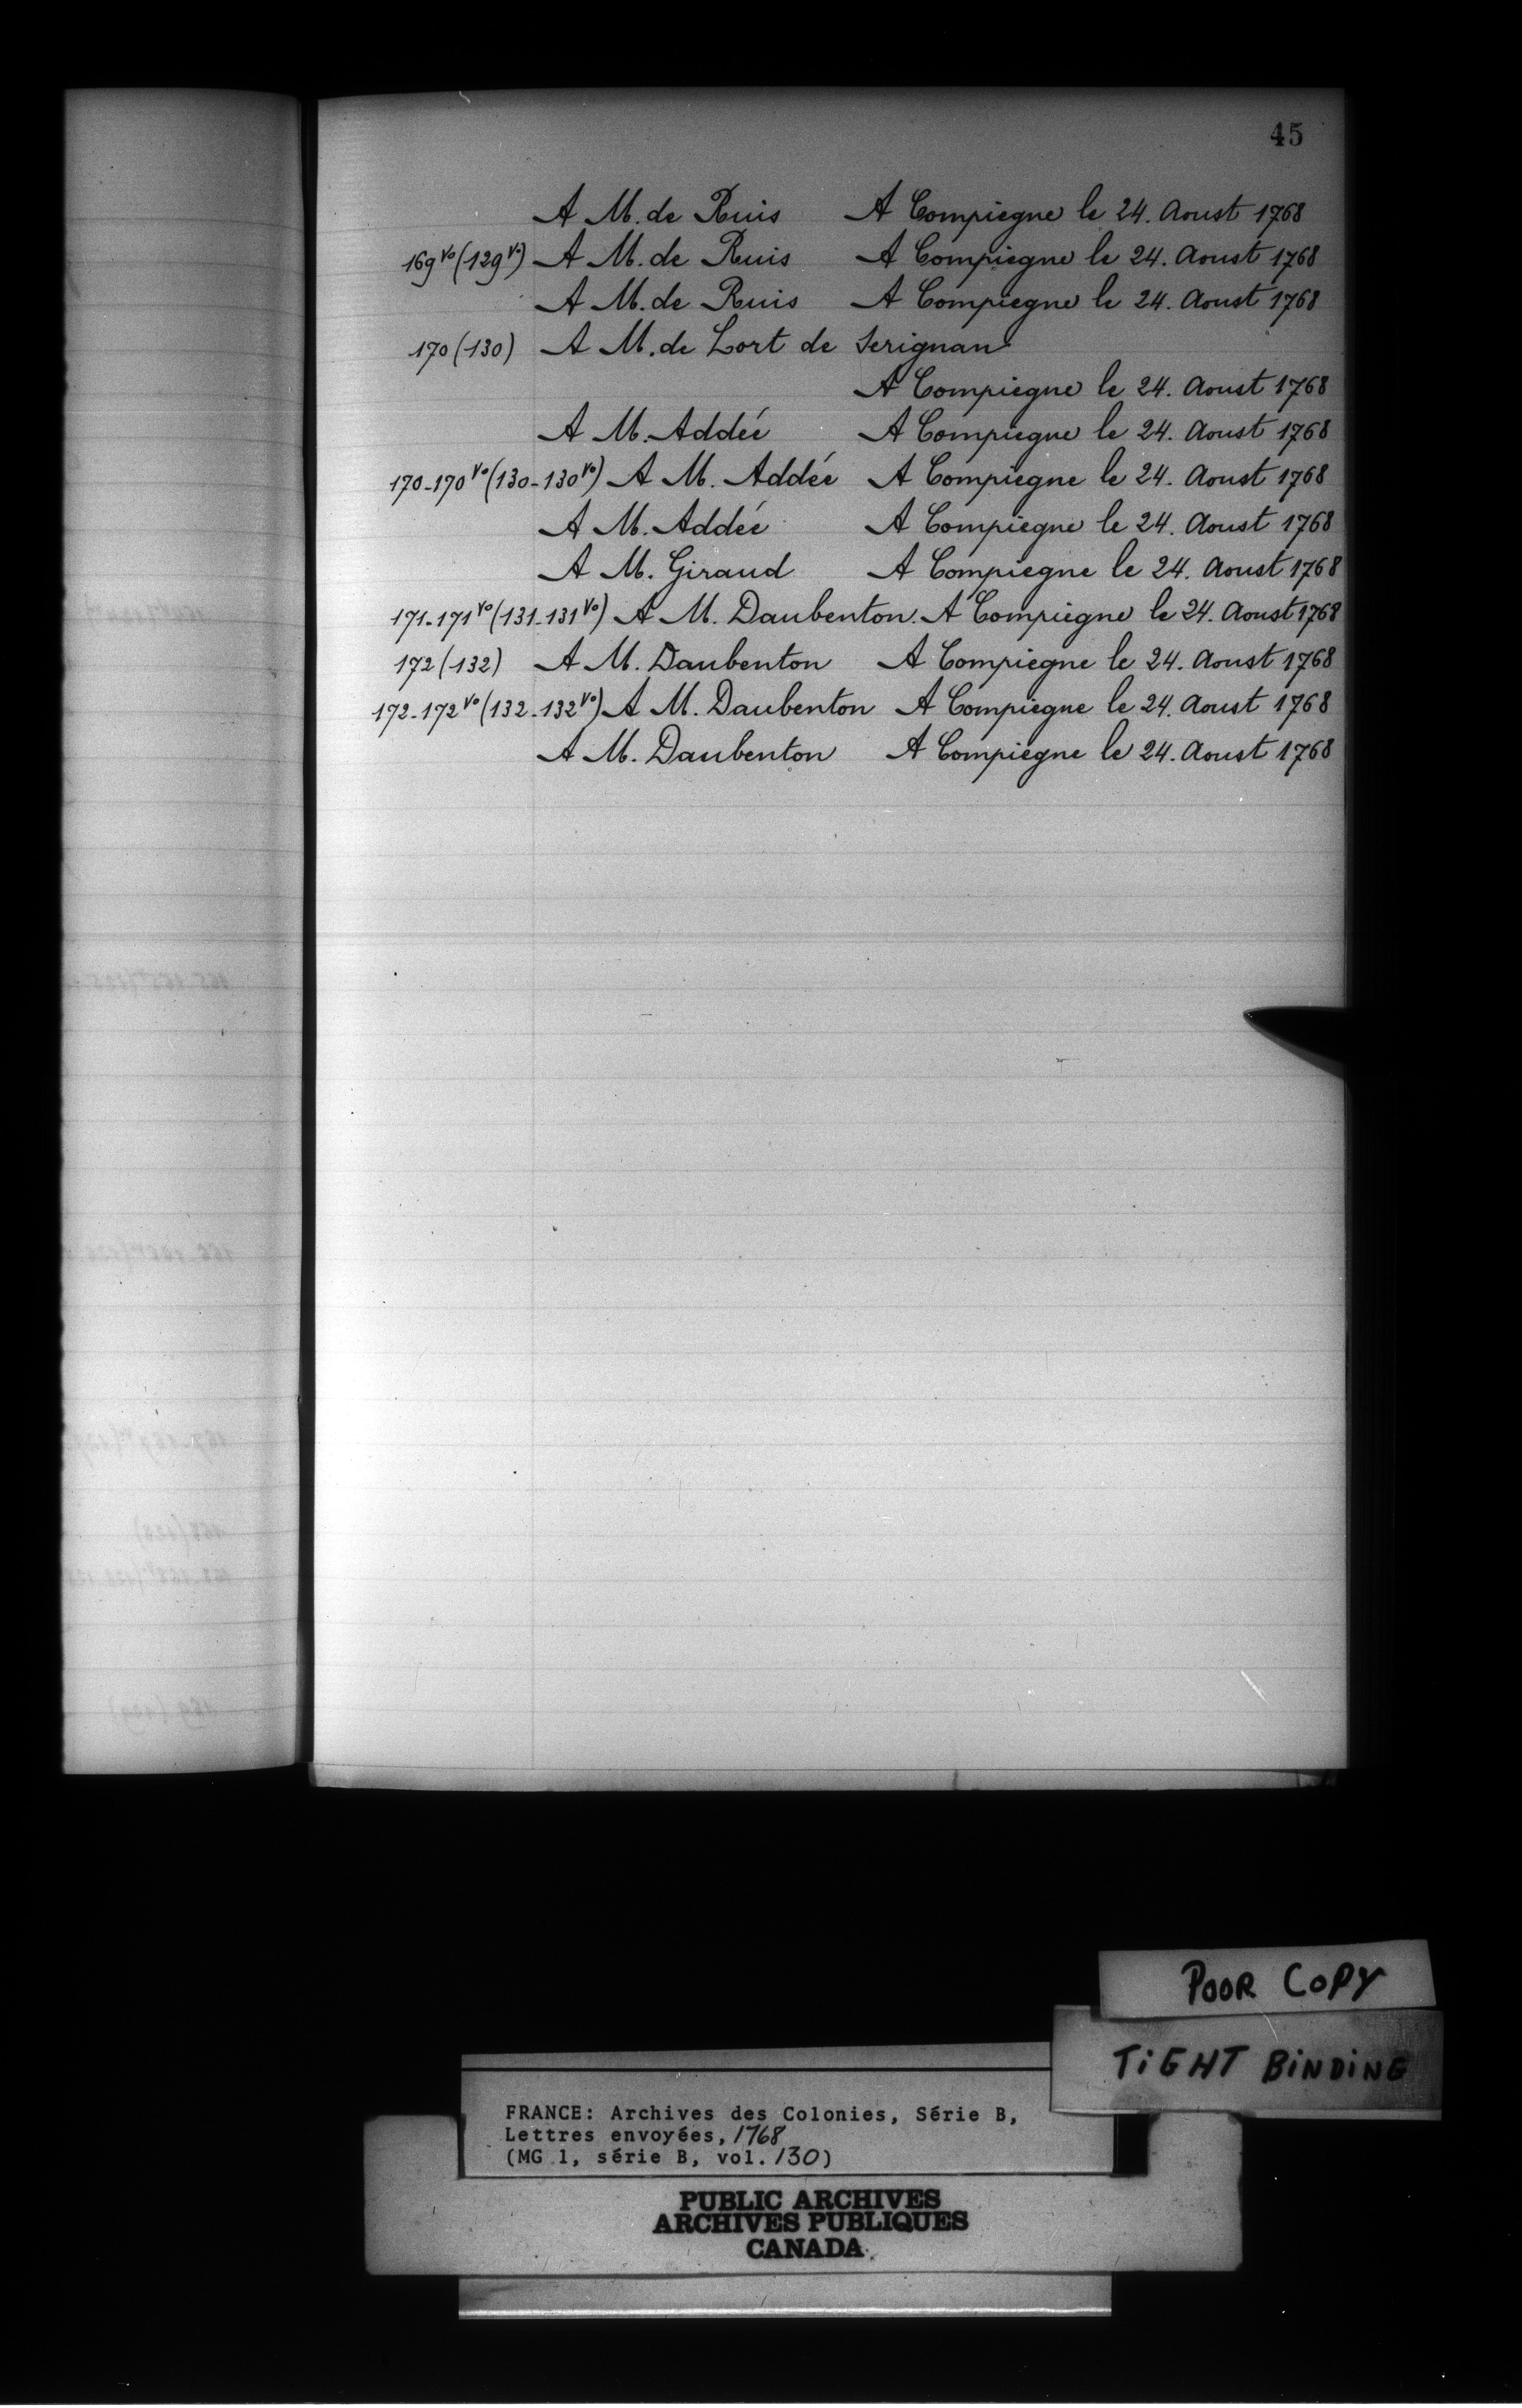 45
A M. de Ruis A Compiegne le 24. Aoust 1768
169 vo (129 vo) A M. de Ruis A Compiegne le 24. Aoust 1768
A M. de Ruis A Compiegne le 24. Aoust 1768
170 (130) A M. de Lort de Serignan
A Compiegne le 24. Aoust 1768
A M. Addée A Compiegne le 24. Aoust 1768
170-170 vo (130-130 vo) A M. Addée A Compiegne le 24. Aoust 1768
A M. Addée A Compiegne le 24. Aoust 1768
A M. Giraud A Compiegne le 24. Aoust 1768
171-171 vo (131-131 vo) A M. Daubenton. A Compiegne le 24. Aoust 1768
172 (132) A M. Daubenton A Compiegne le 24. Aoust 1768
172-172 vo (132-132 vo) A M. Daubenton A Compiegne le 24. Aoust 1768
A M. Daubenton A Compiegne le 24. Aoust 1768
POOR COPY
TIGHT BINDING
FRANCE: Archives des Colonies, Série B,
Lettres envoyées, 1768
(MG 1, série B, vol. 130)
PUBLIC ARCHIVES
ARCHIVES PUBLIQUES
CANADA